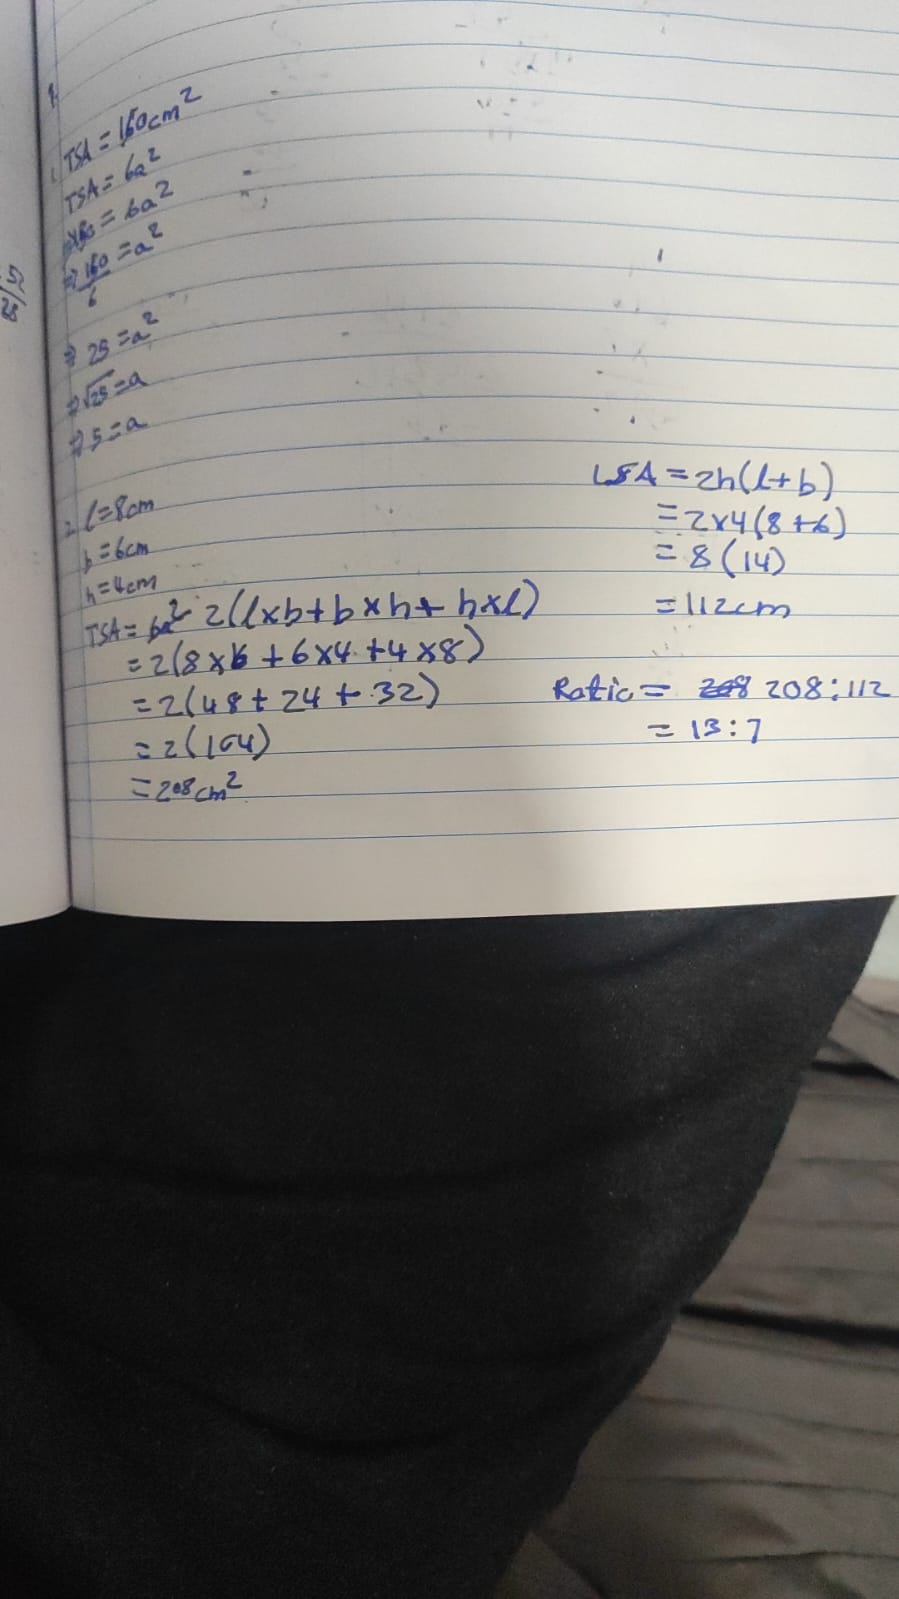 1. TSA = 150cm²
TSA = 6a²
150 = 6a²
⇒ 150/6 = a²
⇒ 25 = a²
⇒ √25 = a
⇒ 5 = a
2. l = 8cm
b = 6cm
h = 4cm
TSA = 6a² 2(l×b+b×h+h×l)
= 2(8×6 + 6×4 + 4×8)
= 2(48 + 24 + 32)
= 2(104)
= 208cm²
LSA = 2h(l+b)
= 2×4(8+6)
= 8(14)
= 112cm
Ratio = 208 208:112
= 13:7